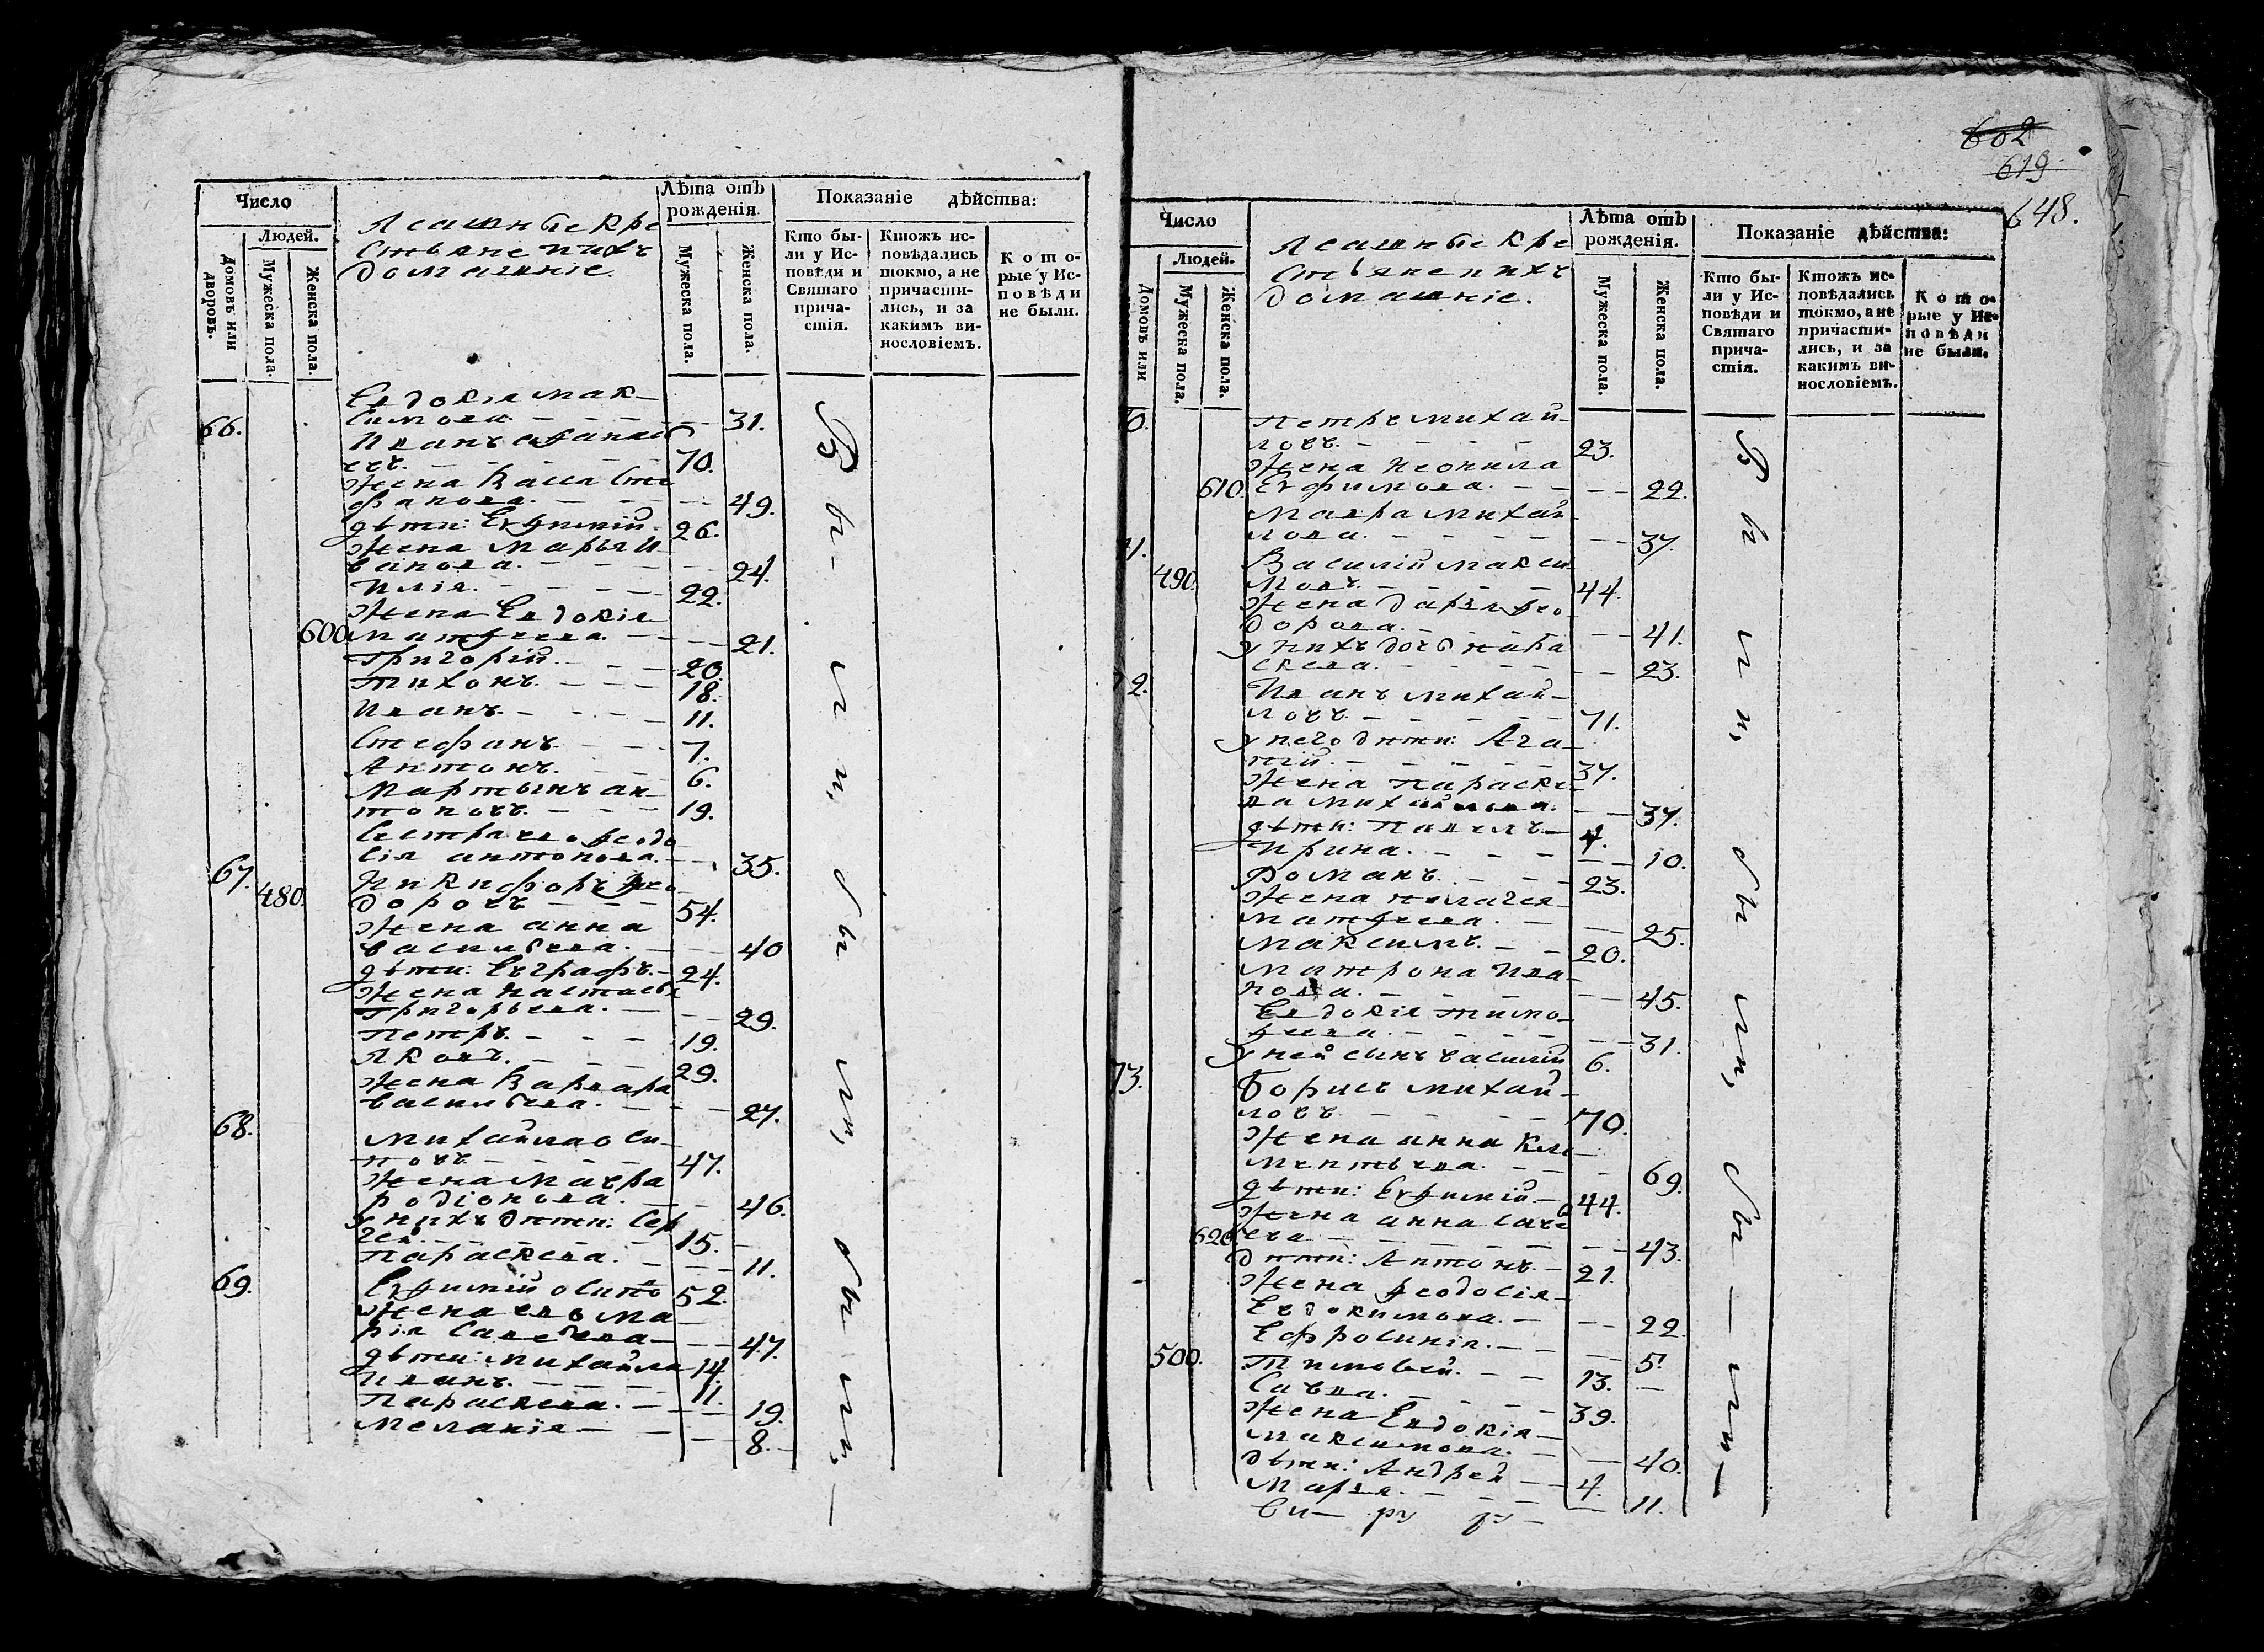 Число
Людей.
Домовъ или дворовъ.
Мужеска пола.
Женска пола.
Ясашныекре
стьяне ихъ
домашніе.
Лѣта отъ
рожденія.
Мужеска пола.
Женска пола.
Показаніе дѣйства:
Кто бы-
ли у Ис-
повѣди и
Святаго
прича-
стія.
Ктожъ ис-
повѣдались
токмо, а не
причасти-
лись, и за
какимъ ви-
нословіемъ.
Кото-
рые у Ис-
повѣди
не были.
Евдокія мак-
симова 31.
66. Иванъ афанась
евъ. 70.
Жена Васса сте
фанова. 49.
дѣти: Евфимій 26.
Жена Марья и
ванова. 24.
Илія. 22.
Жена Евдокія
600. матфеева. 21.
Григорій. 20.
Тихонъ. 18.
Иванъ. 11.
Стефанъ. 7.
Антонъ. 6.
Мартынъ ан-
тоновъ. 19.
Сестра его феодо
сія антонова. 35.
67. 480. Никифоръ фео
доровъ 54.
Жена анна
васильева. 40
дѣти: Евграфъ. 24.
Жена настасья
Григорьева. 29.
Петръ. 19.
Яковъ. 29.
Жена Варвара
васильева. 27.
68. Михайла оси-
повъ 47.
Жена Мавра
родіонова. 46.
у нихъ дѣти: Сер
гей. 15.
Параскева. 11.
69. Евфимій осипо 52.
Жена его Ма
рія Савельева 47.
дѣти: михайла 14.
Иванъ. 11.
Параскева. 19.
Меланія 8.
Были, были, были,
602
619
648.
Число
Людей.
Домовъ или
Мужеска пола.
Женска пола.
Ясашныекре
стьяне ихъ
домашніе.
Лѣта отъ
рожденія.
Мужеска пола.
Женска пола.
Показаніе дѣйства:
Кто бы-
ли у Ис-
повѣди и
Святаго
прича-
стія.
Ктожъ ис-
повѣдались
токмо, а не
причасти-
лись, и за
какимъ ви-
нословіемъ.
Кото-
рые у Ис-
повѣди
не были.
70. Петръ михай-
ловъ. 23.
Жена Неонила
610. Евфимова. 22.
Мавра михай
лова. 37.
71. Василій макси
490. мовъ 44.
Жена дарья фео
дорова. 41.
у нихъ дочь параскева. 23.
72. Иванъ михай-
ловъ. 71.
у него дѣти: Ага-
пій. 37.
Жена параске-
ва михайлова. 37.
дѣти: Павелъ 4.
Ирина. 10.
Романъ. 23.
Жена пелагея
матфеева. 25.
Максимъ. 20.
Матрона Ива-
нова. 45.
Евдокія тимо-
феева. 31.
у ней сынъ василій 6.
73. Борисъ михай-
ловъ 70.
Жена анна Кле-
ментьева. 69.
дѣти: Евфимій 44.
Жена анна саве
620. ева 43.
дѣти: Антонъ. 21.
Жена феодосія
Евдокимова. 22.
Ефросинія. 5.
500. Тимофей. 13.
Савва. 39.
Жена Евдокія
Максимова. 40.
дѣти: Андрей 4.
Марья. 11.
Были, были, были